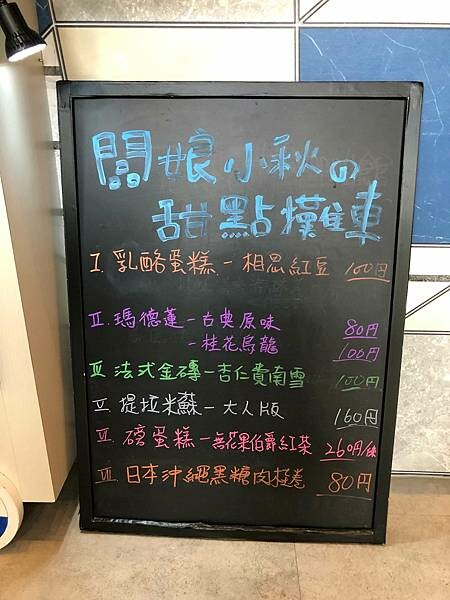 闆娘小秋の
甜點攤車
I. 乳酪蛋糕-相思紅豆 100円
II. 瑪德蓮-古典原味 80円
-桂花烏龍 100円
III. 法式金磚-杏仁費南雪 100円
V. 提拉米蘇-大人版 160円
VI. 磅蛋糕-無花果伯爵紅茶 260円/
VII. 日本沖繩黑糖肉桂卷 80円